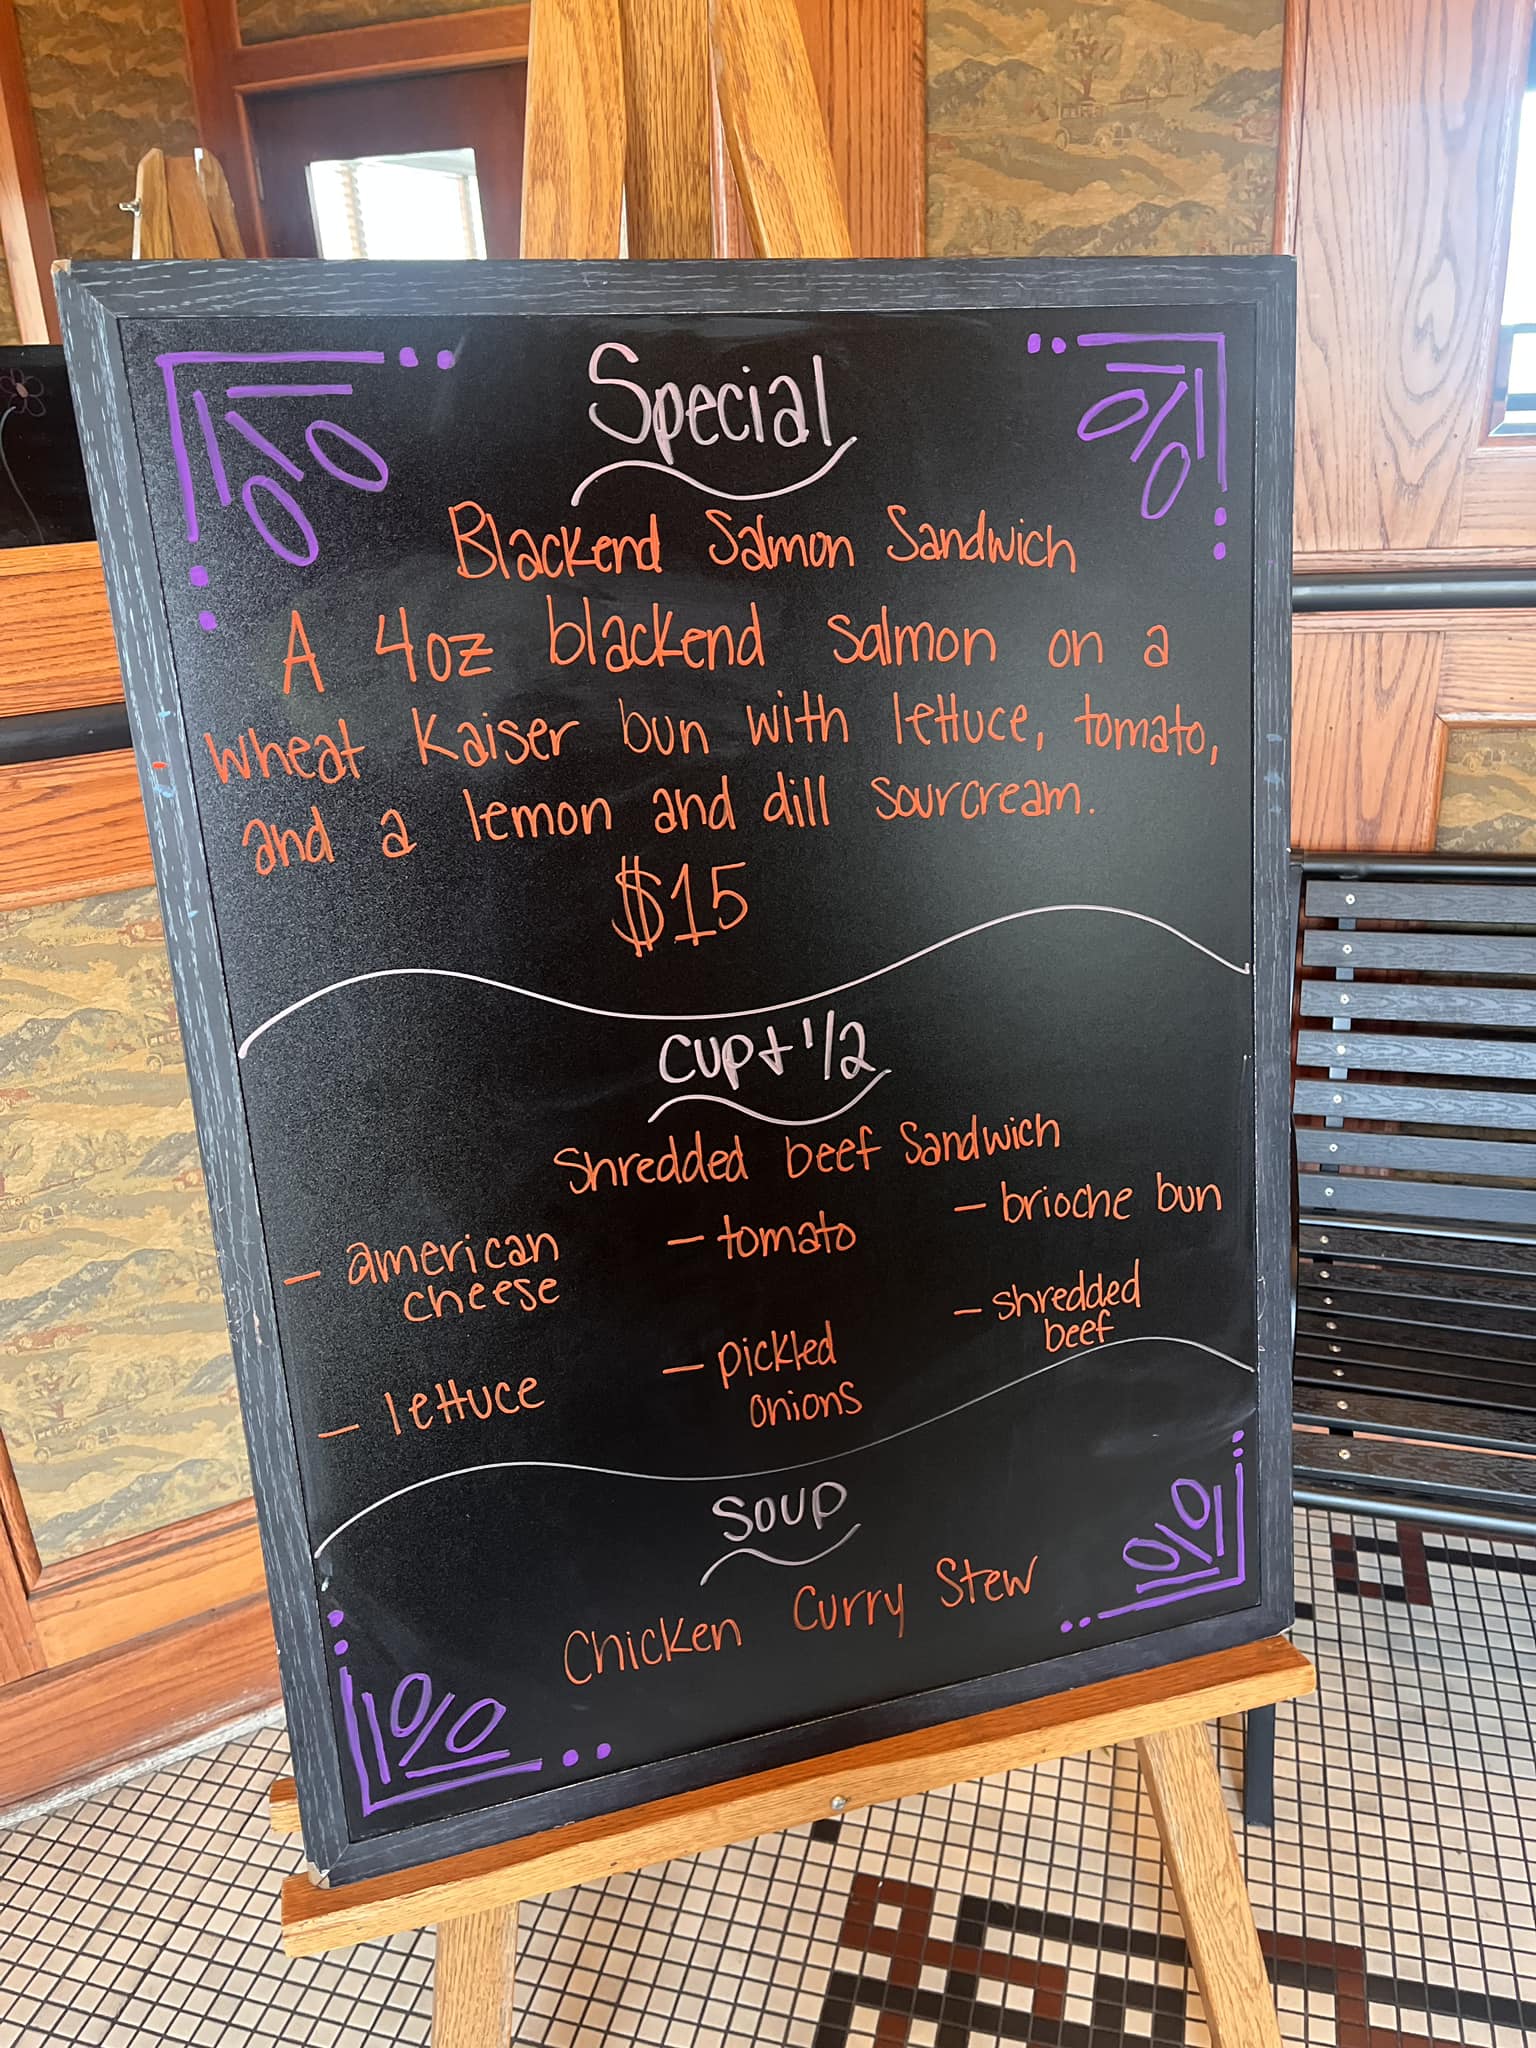 Special
Blackend Salmon Sandwich
A 4oz blackend salmon on a
wheat Kaiser bun with lettuce, tomato,
and a lemon and dill sourcream.
$15
cup + 1/2
Shredded beef Sandwich
- american cheese
- tomato
- brioche bun
- lettuce
- pickled onions
- shredded beef
soup
Chicken Curry Stew